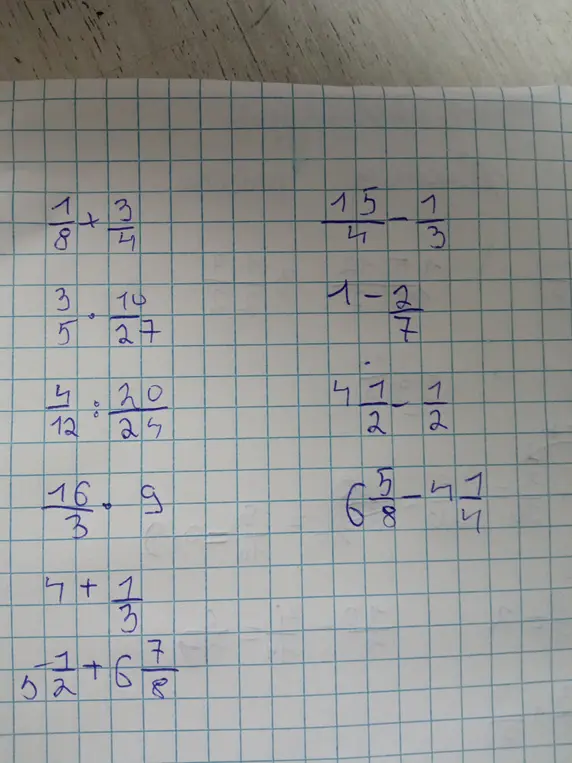 1/8 + 3/4
3/5 · 10/27
4/12 : 20/24
16/3 · 9
4 + 1/3
5 1/2 + 6 7/8
15/4 - 1/3
1 - 2/7
4 1/2 - 1/2
6 5/8 - 4 1/4